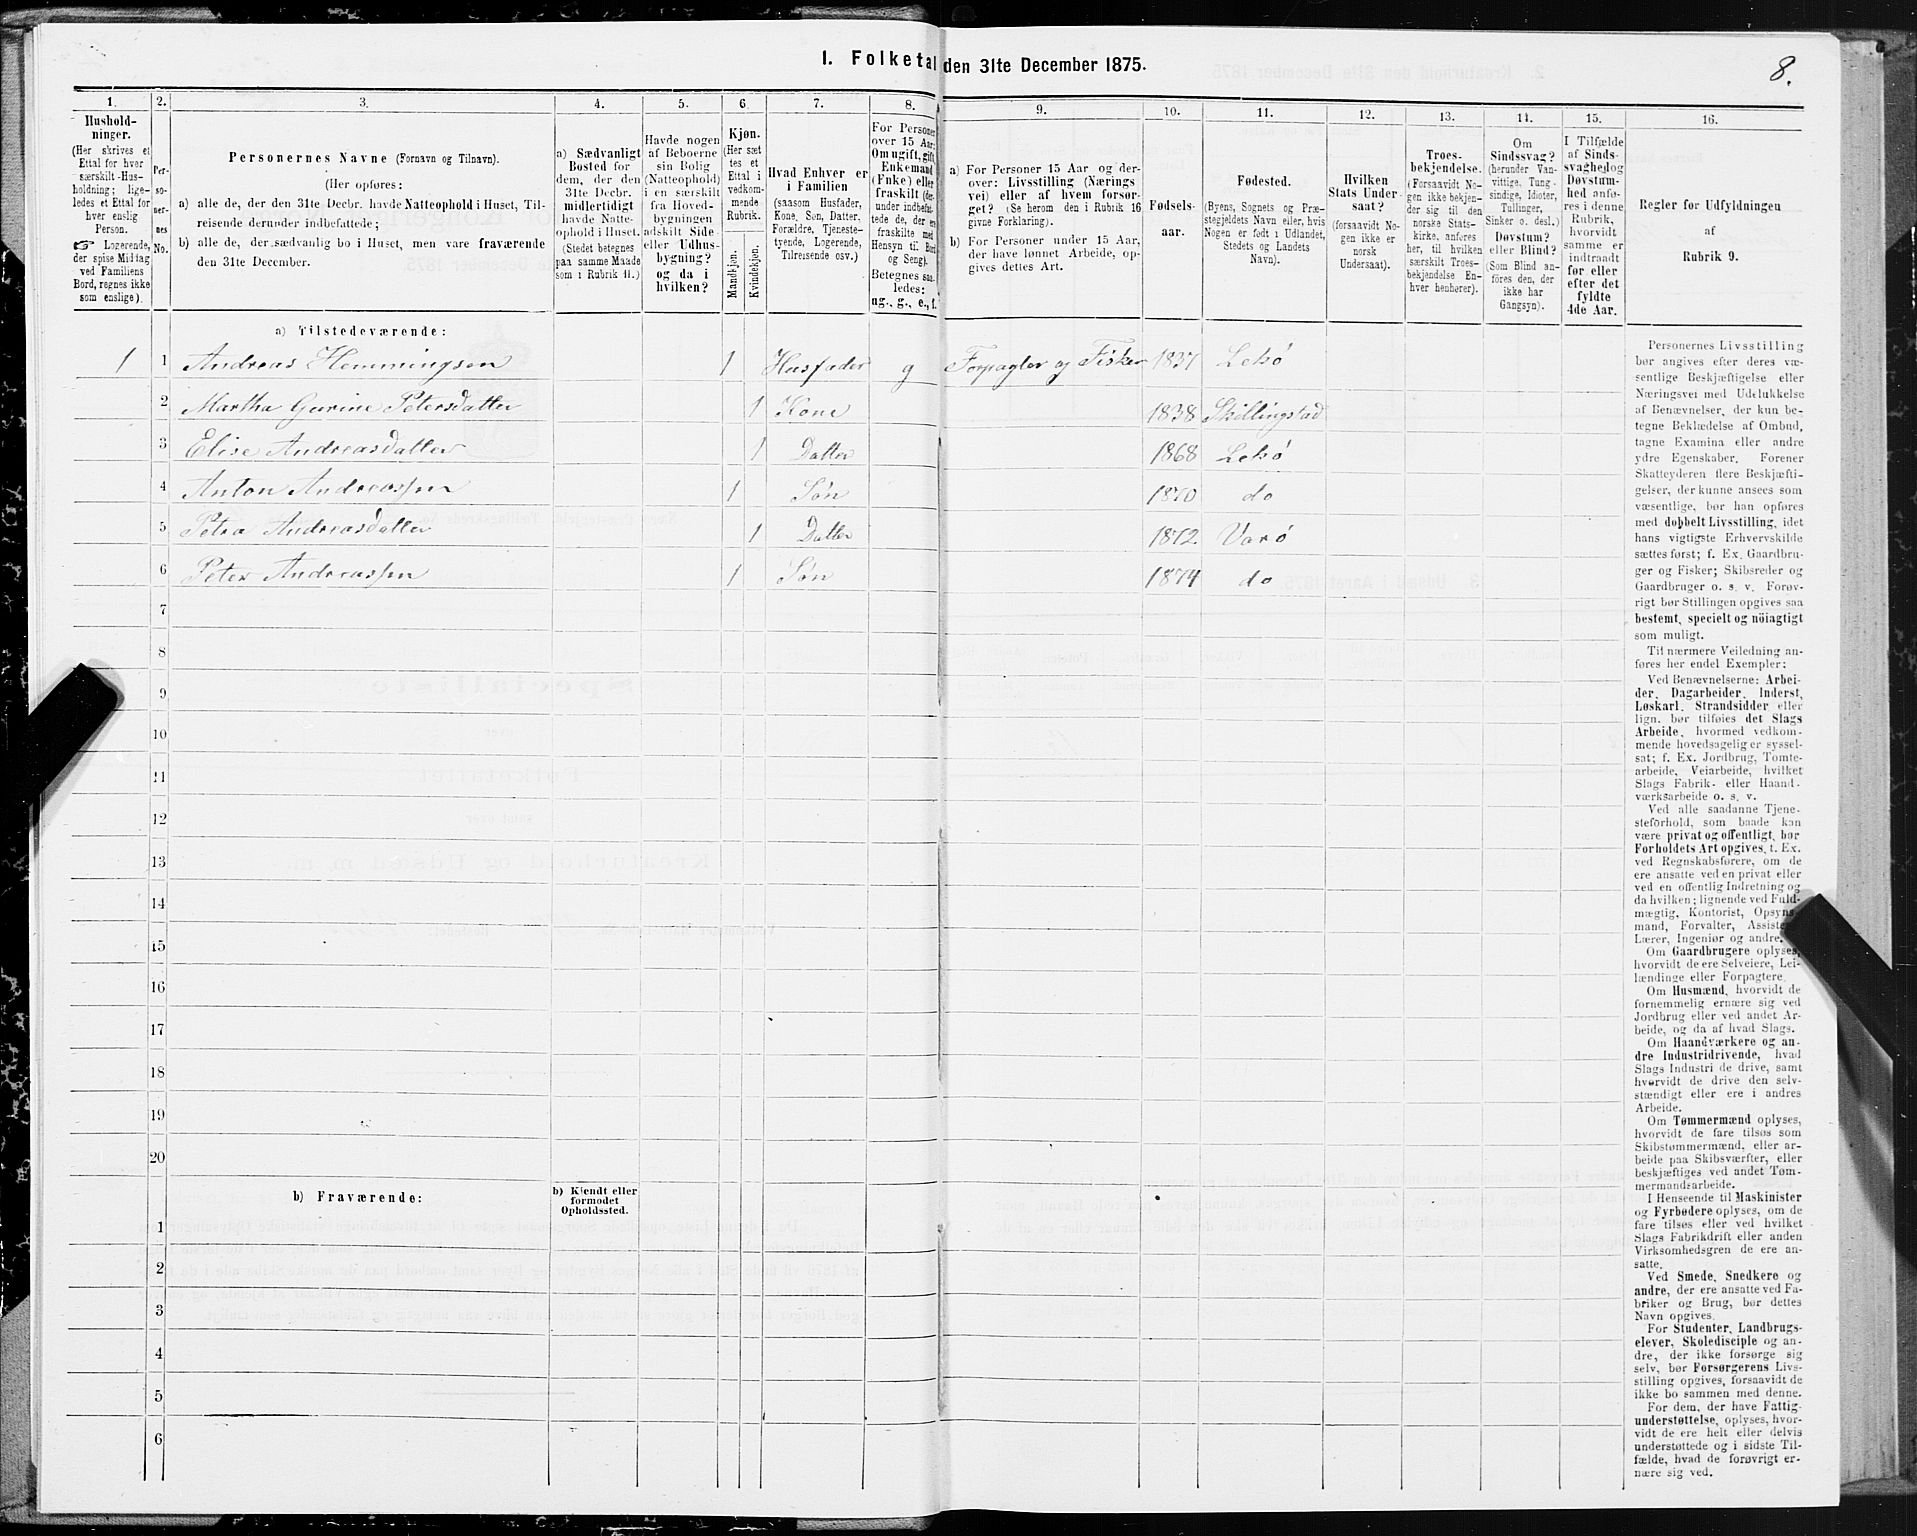 I. Folketal den 31te December 1875.
8.
1.
Hushold-
ninger.
(Her skrives et
Ettal for hver
særskilt Hus-
holdning; lige-
ledes et Ettal for
hver enslig
Person.
☞ Logerende,
der spise Middag
ved Familiens
Bord, regnes ikke
som enslige).
2.
Per-
so-
ner-
nes
No.
3.
Personernes Navne (Fornavn og Tilnavn).
(Her opføres:
a) alle de, der den 31te Decbr. havde Natteophold i Huset, Til-
reisende derunder indbefattede;
b) alle de, der sædvanlig bo i Huset, men vare fraværende
den 31te December.
4.
a) Sædvanligt
Bosted for
dem, der den
31te Decbr.
midlertidigt
havde Natte-
ophold i Huset.
(Stedet betegnes
paa samme Maade
som i Rubrik 11.)
5.
Havde nogen
af Beboerne
sin Bolig
(Natteophold)
i en særskilt
fra Hoved-
bygningen
adskilt Side
eller Udhus-
bygning?
og da i
hvilken?
6.
Kjøn.
(Her sæt
tes et
Ettal i
vedkom-
mende
Rubrik.
Mandkjøn.
Kvindekjøn.
7.
Hvad Enhver er
i Familien
(saasom Husfader,
Kone, Søn, Datter,
Forældre, Tjeneste-
tyende, Logerende,
Tilreisende osv.)
8.
For Personer
over 15 Aar:
Om ugift, gift,
Enkemand
(Enke) eller
fraskilt (her-
under indbefat-
tede de, der ere
fraskilte med
Hensyn til Bord
og Seng).
Betegnes saa-
ledes:
ug., g., e., f.
9.
a) For Personer 15 Aar og der-
over: Livsstilling (Nærings
vei) eller af hvem forsør-
get? (Se herom den i Rubrik 16
givne Forklaring).
b) For Personer under 15 Aar,
der have lønnet Arbeide, op-
gives dettes Art.
10.
Fødsels-
aar.
11.
Fødested.
(Byens, Sognets og Præ-
stegjeldets Navn eller, hvis
Nogen er født i Udlandet,
Stedets og Landets
Navn).
12.
Hvilken
Stats Under-
saat?
(forsaavidt No-
gen ikke er
norsk
Undersaat).
13.
Troes-
bekjendelse.
(Forsaavidt No-
gen ikke bekjen-
der sig til den
norske Stats-
kirke, anføres
her, til hvilken
særskilt Troes-
bekjendelse En-
hver henhører).
14.
Om
Sindssvag?
(herunder Van-
vittige, Tung-
sindige, Idioter,
Tullinger,
Sinker o. desl.)
Døvstum?
eller Blind?
(Som Blind an-
føres den, der
ikke har
Gangsyn).
15.
I Tilfælde
af Sinds-
svaghed og
Døvstum-
hed anfø-
res i denne
Rubrik,
hvorvidt
samme er
indtraadt
før eller
efter det
fyldte
4de Aar.
16.
Regler for Udfyldningen
af
Rubrik 9.
a) Tilstedeværende:
1 1 Andreas Hemmingsen 1 Husfader g Forpagter og Fisker 1837 Lelsö
2 Martha Gurine Petersdatter 1 Kone 1838 Skillingstad
3 Elise Andreasdatter 1 Datter 1868 Lelsö
4 Anton Andreassen 1 Søn 1870 do
5 Petra Andreasdatter 1 Datter 1872 Varö
6 Peter Andreassen 1 Søn 1874 do
7
8
9
10
11
12
13
14
15
16
17
18
19
20
b) Fraværende:
b) Kjendt eller
formodet
Opholdssted.
1
2
3
4
5
6
Personernes Livsstilling
bør angives efter deres væ-
sentlige Beskjæftigelse eller
Næringsvei med Udelukkelse
af Benævnelser, der kun be-
tegne Beklædelse af Ombud,
tagne Examina eller andre
ydre Egenskaber. Forener
Skatteyderen flere Beskjæfti-
gelser, der kunne ansees som
væsentlige, bør han opføres
med dobbelt Livsstilling, idet
hans vigtigste Erhvervskilde
sættes først; f. Ex. Gaardbru-
ger og Fisker; Skibsreder og
Gaardbruger o. s. v. Forøv-
rigt bør Stillingen opgives saa
bestemt, specielt og nöiagtigt
som muligt.
Til nærmere Veiledning an-
føres her endel Exempler:
Ved Benævnelserne: Arbei-
der, Dagarbeider, Inderst,
Løskarl, Strandsidder eller
lign. bør tilføies det Slags
Arbeide, hvormed vedkom-
mende hovedsagelig er syssel-
sat; f. Ex. Jordbrug, Tomte-
arbeide, Veiarbeide, hvilket
Slags Fabrik- eller Haand-
værksarbeide o. s. v.
Ved alle saadanne Tjene-
steforhold, som baade kan
være privat og offentligt, bør
Forholdets Art opgives, f. Ex.
ved Regnskabsførere, om de
ere ansatte ved en privat eller
ved en offentlig Indretning og
da hvilken; lignende ved Fuld-
mægtig, Kontorist, Opsyns-
mand, Forvalter, Assistent,
Lærer, Ingeniør og andre.
Om Gaardbrugere oplyses,
hvorvidt de ere Selveiere, Lei-
lændinge eller Forpagtere.
Om Husmænd, hvorvidt de
fornemmelig ernære sig ved
Jordbrug eller ved andet Ar-
beide, og da af hvad Slags.
Om Haandværkere og an-
dre Industridrivende, hvad
Slags Industri de drive, samt
hvorvidt de drive den selv-
stændigt eller ere i andres
Arbeide.
Om Tømmermænd oplyses,
hvorvidt de fare tilsøs som
Skibstømmermænd, eller ar-
beide paa Skibsværfter, eller
beskjæftiges ved andet Tøm-
mermandsarbeide.
I Henseende til Maskinister
og Fyrbødere oplyses, om de
fare tilsøs eller ved hvilket
Slags Fabrikdrift eller anden
Virksomhedsgren de ere an-
satte.
Ved Smede, Snedkere og
andre, der ere ansatte ved Fa-
briker og Brug, bør dettes
Navn opgives.
For Studenter, Landbrugs-
elever, Skoledisciple og an-
dre, der ikke forsørge sig
selv, bør Forsørgerens Livs-
stilling opgives, forsaavidt de
ikke bo sammen med denne.
For dem, der have Fattig-
understøttelse, oplyses, hvor-
vidt de ere helt eller delvis
understøttede og i sidste Til-
fælde, hvad de forøvrigt er-
nære sig ved.